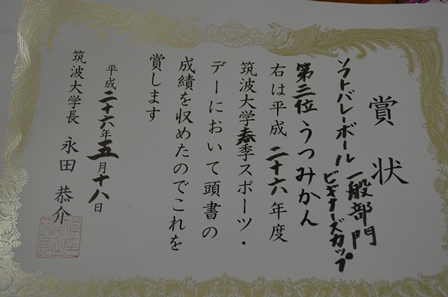 賞状
ソフトバレーボール一般部門
ビギナーズカップ
第三位・うつみかん
右は平成二十六年度
筑波大学春季スポーツ・
デーにおいて頭書の
成績を収めたのでこれを
賞します
平成二十六年五月十八日
筑波大学長 永田恭介